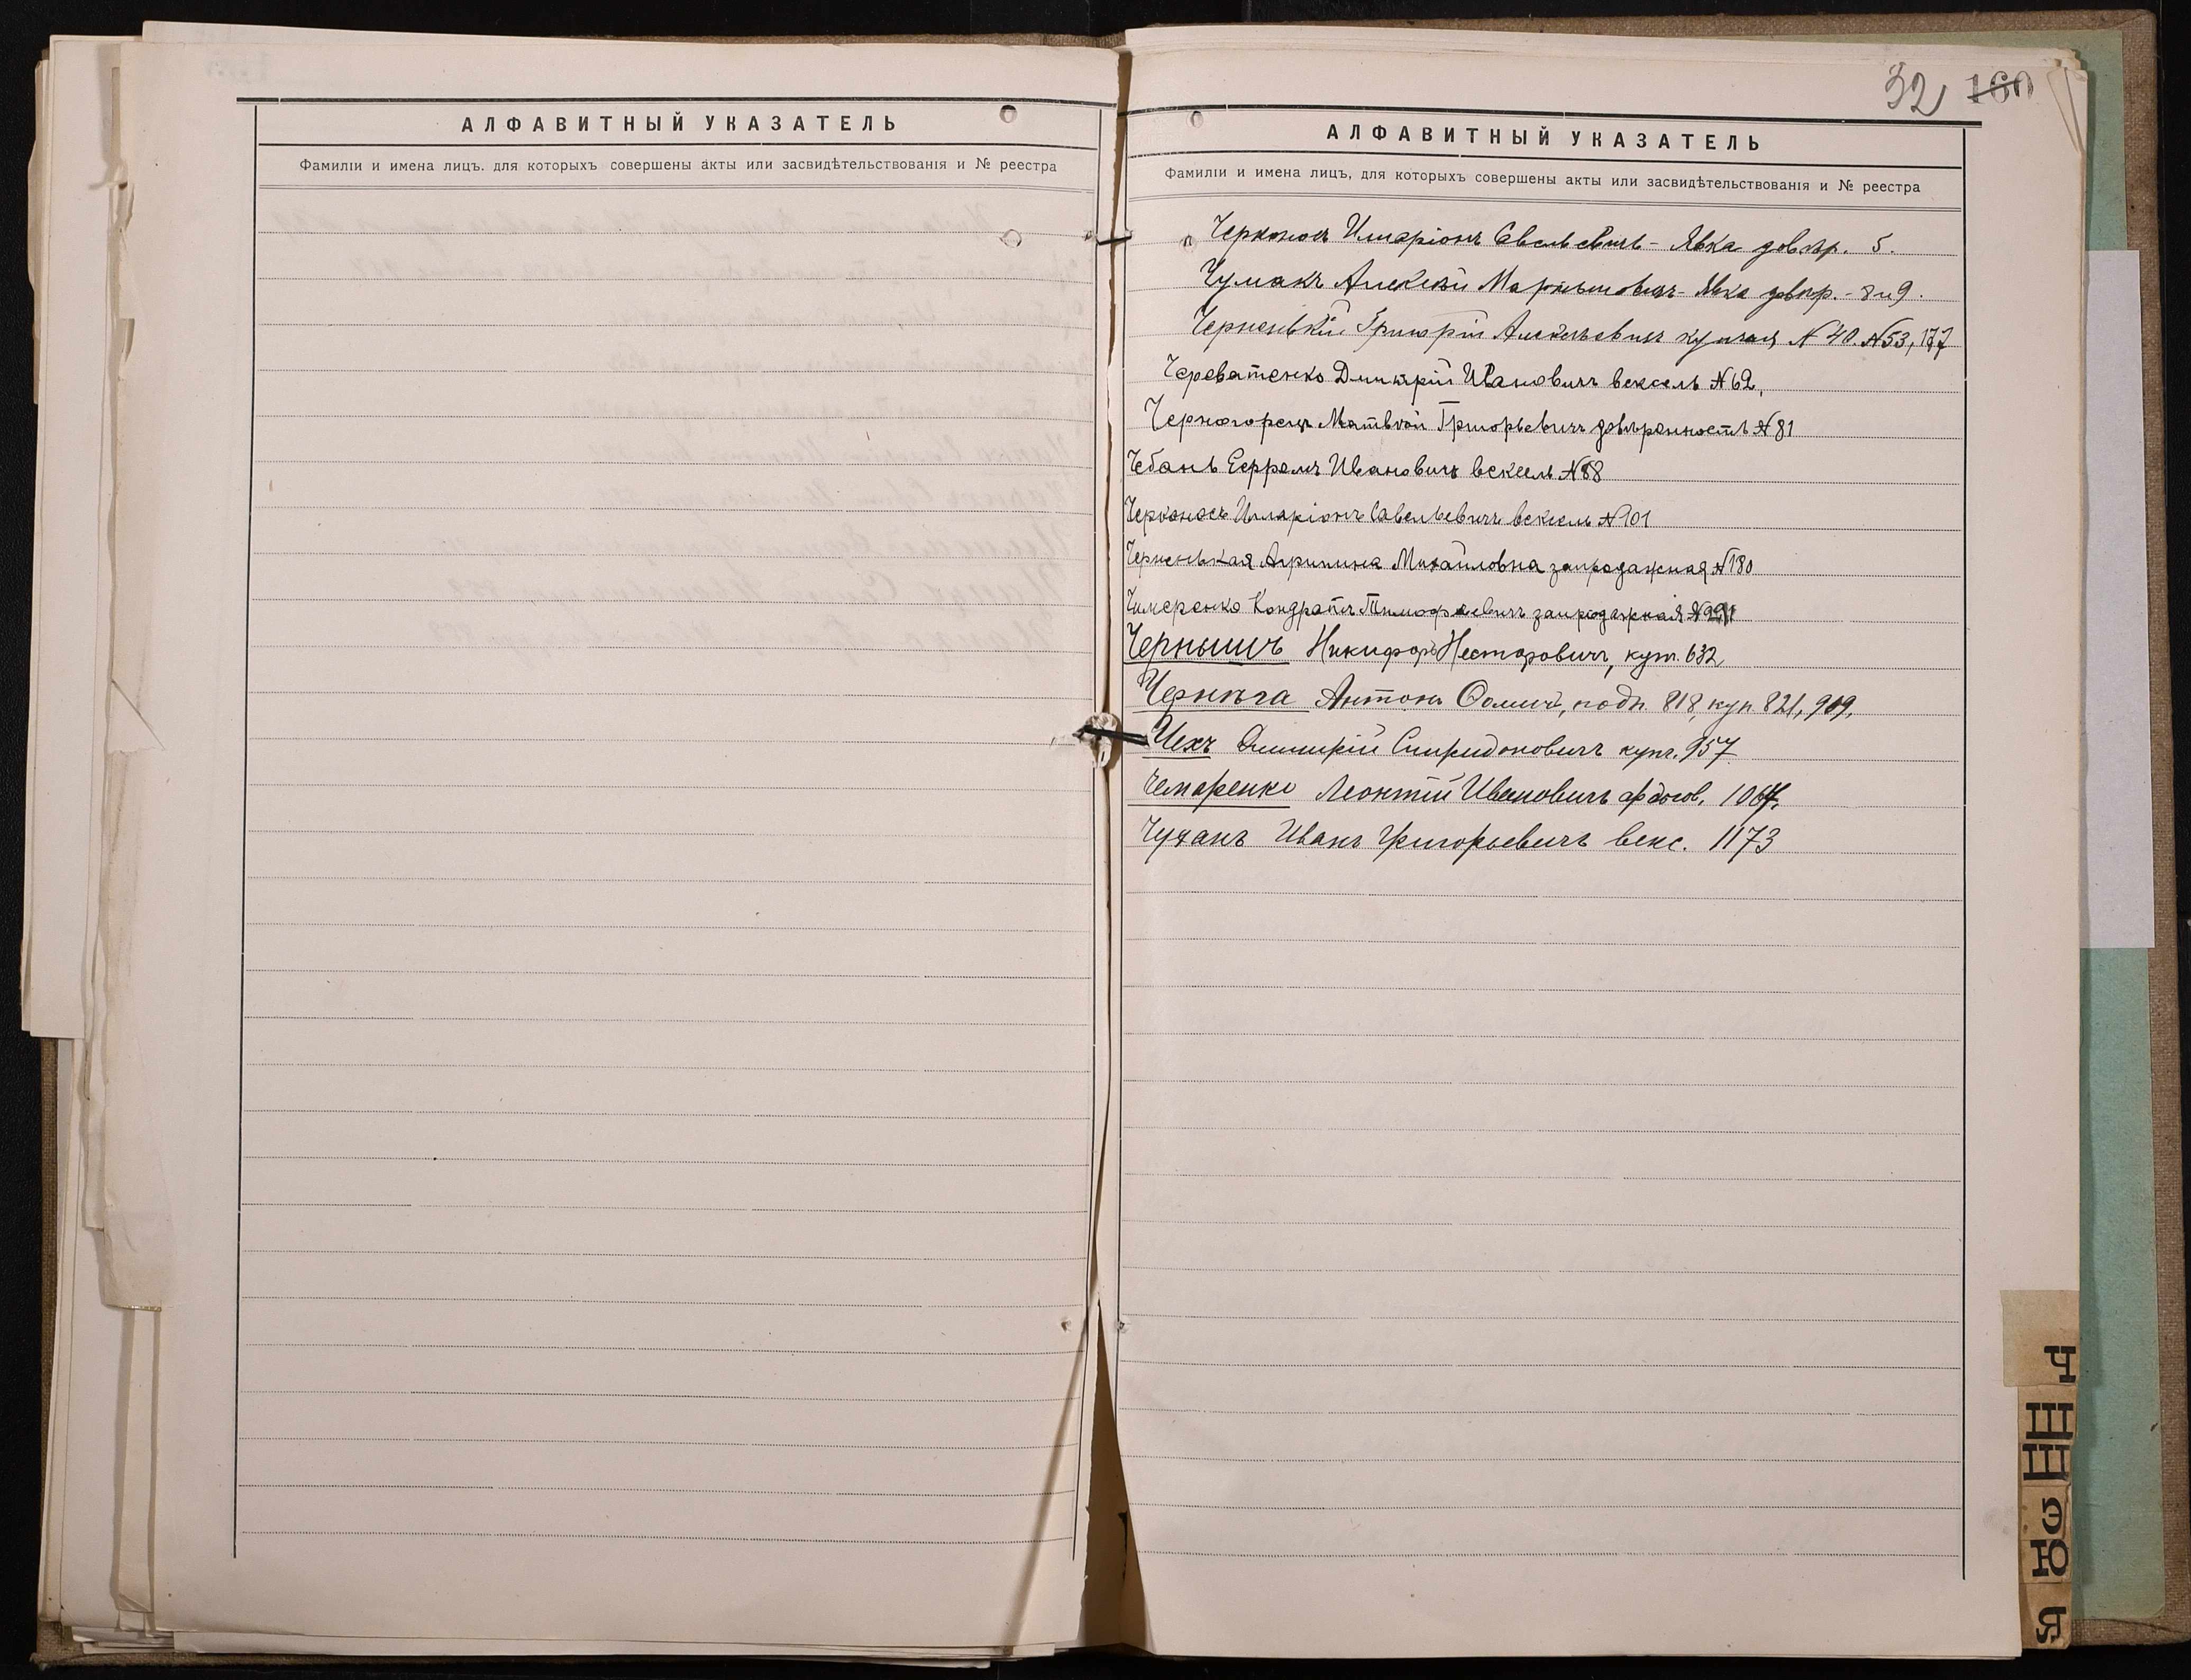 АЛФАВИТНЫЙ УКАЗАТЕЛЬ
Фамиліи и имена лицъ, для которыхъ совершены акты или засвидѣтельствованія и № реестра
32 160
АЛФАВИТНЫЙ УКАЗАТЕЛЬ
Фамиліи и имена лицъ, для которыхъ совершены акты или засвидѣтельствованія и № реестра
Черконосъ Иларіонъ Савельевичъ - Явка довѣр. 5.
Чумакъ Алексѣй Мартыновичъ - Явка довѣр. - 8 и 9.
Черненькій Григорій Алексѣевичъ купчая № 40. № 53, 177
Череватенко Дмитрій Ивановичъ вексель № 62,
Черногорецъ Матвѣй Григорьевичъ довѣренность № 81
Чебанъ Ефремъ Ивановичъ вексель № 88
Черконосъ Иларіонъ Савельевичъ вексель № 101
Черненькая Агрипина Михайловна запродажная № 180
Чимеренко Кондратъ Тимофѣевичъ запродажная №
Чернышъ Никифоръ Несторовичъ, купч. 632
Чернѣга Антонъ Ѳомичъ, подп. 818, куп. 821, 909.
Чехъ Димитрій Спиридоновичъ купч. 957
Чемеренко Леонтій Ивановичъ 1064.
Чуханъ Иванъ Григорьевичъ векс. 1173
Ч
Ш
Щ
Э
Ю
Я